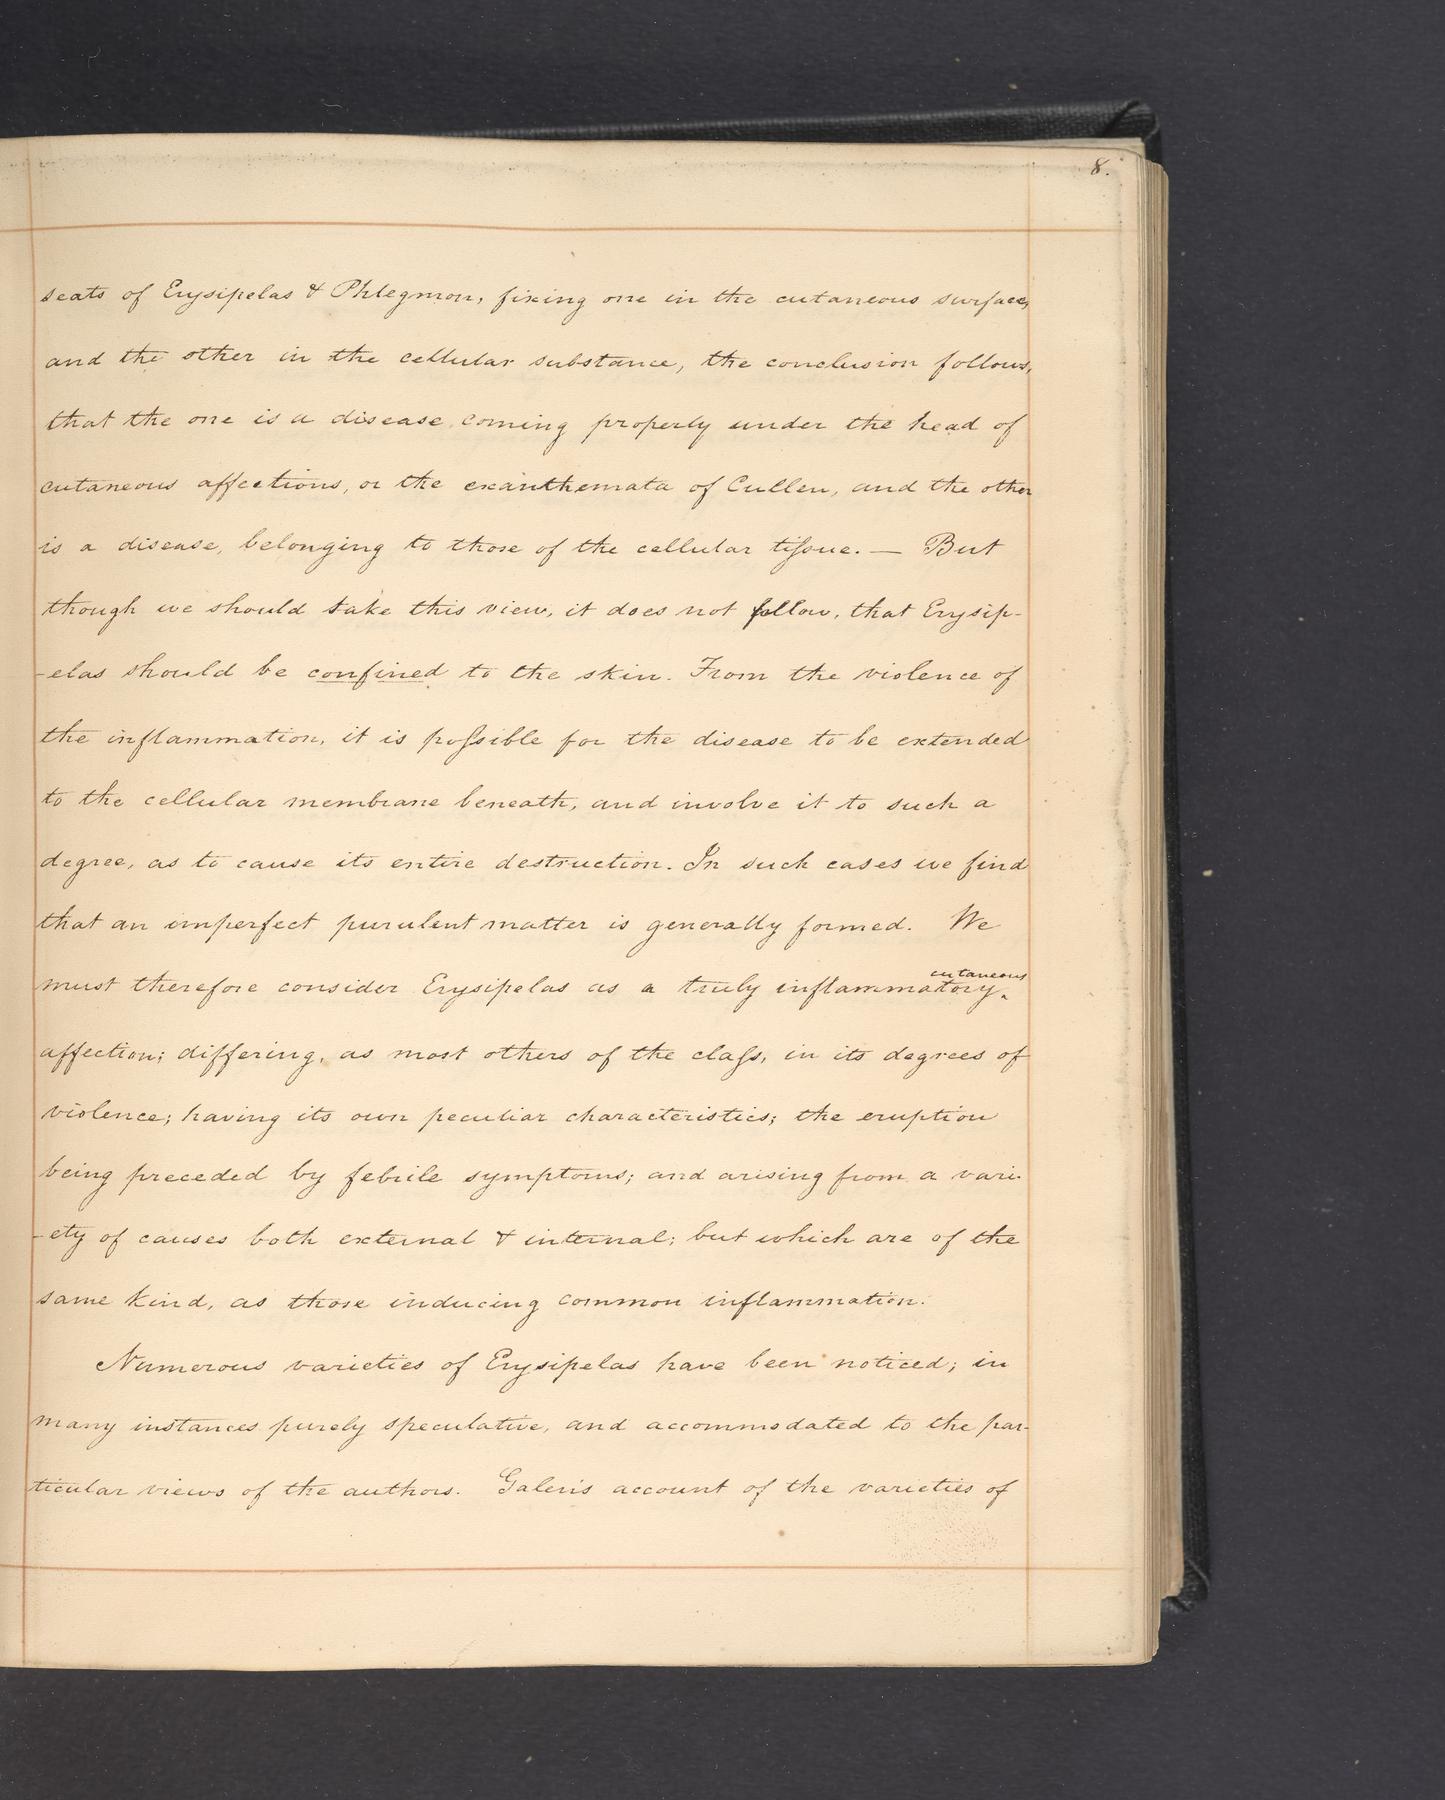 8.
seats of Erysipelas & Phlegmon, fixing one in the cutaneous surface,
and the other in the cellular substance, the conclusion follows,
that the one is a disease coming properly under the head of
cutaneous affections, or the exanthemata of Cullen, and the other
is a disease, belonging to those of the cellular tiſsue. — But
though we should take this view, it does not follow, that Erysip-
-elas should be confined to the skin. From the violence of
the inflammation, it is poſsible for the disease to be extended
to the cellular membrane beneath, and involve it to such a
degree, as to cause its entire destruction. In such cases we find
that an imperfect purulent matter is generally formed. We
cutaneous
must therefore consider Erysipelas as a truly inflammatory‸
affection; differing, as most others of the claſs, in its degrees of
violence; having its own peculiar characteristics; the eruption
being preceded by febrile symptoms; and arising from a vari-
-ety of causes both external & internal; but which are of the
same kind, as those inducing common inflammation.
Numerous varieties of Erysipelas have been noticed; in
many instances purely speculative, and accommodated to the par-
ticular views of the authors. Galen's account of the varieties of